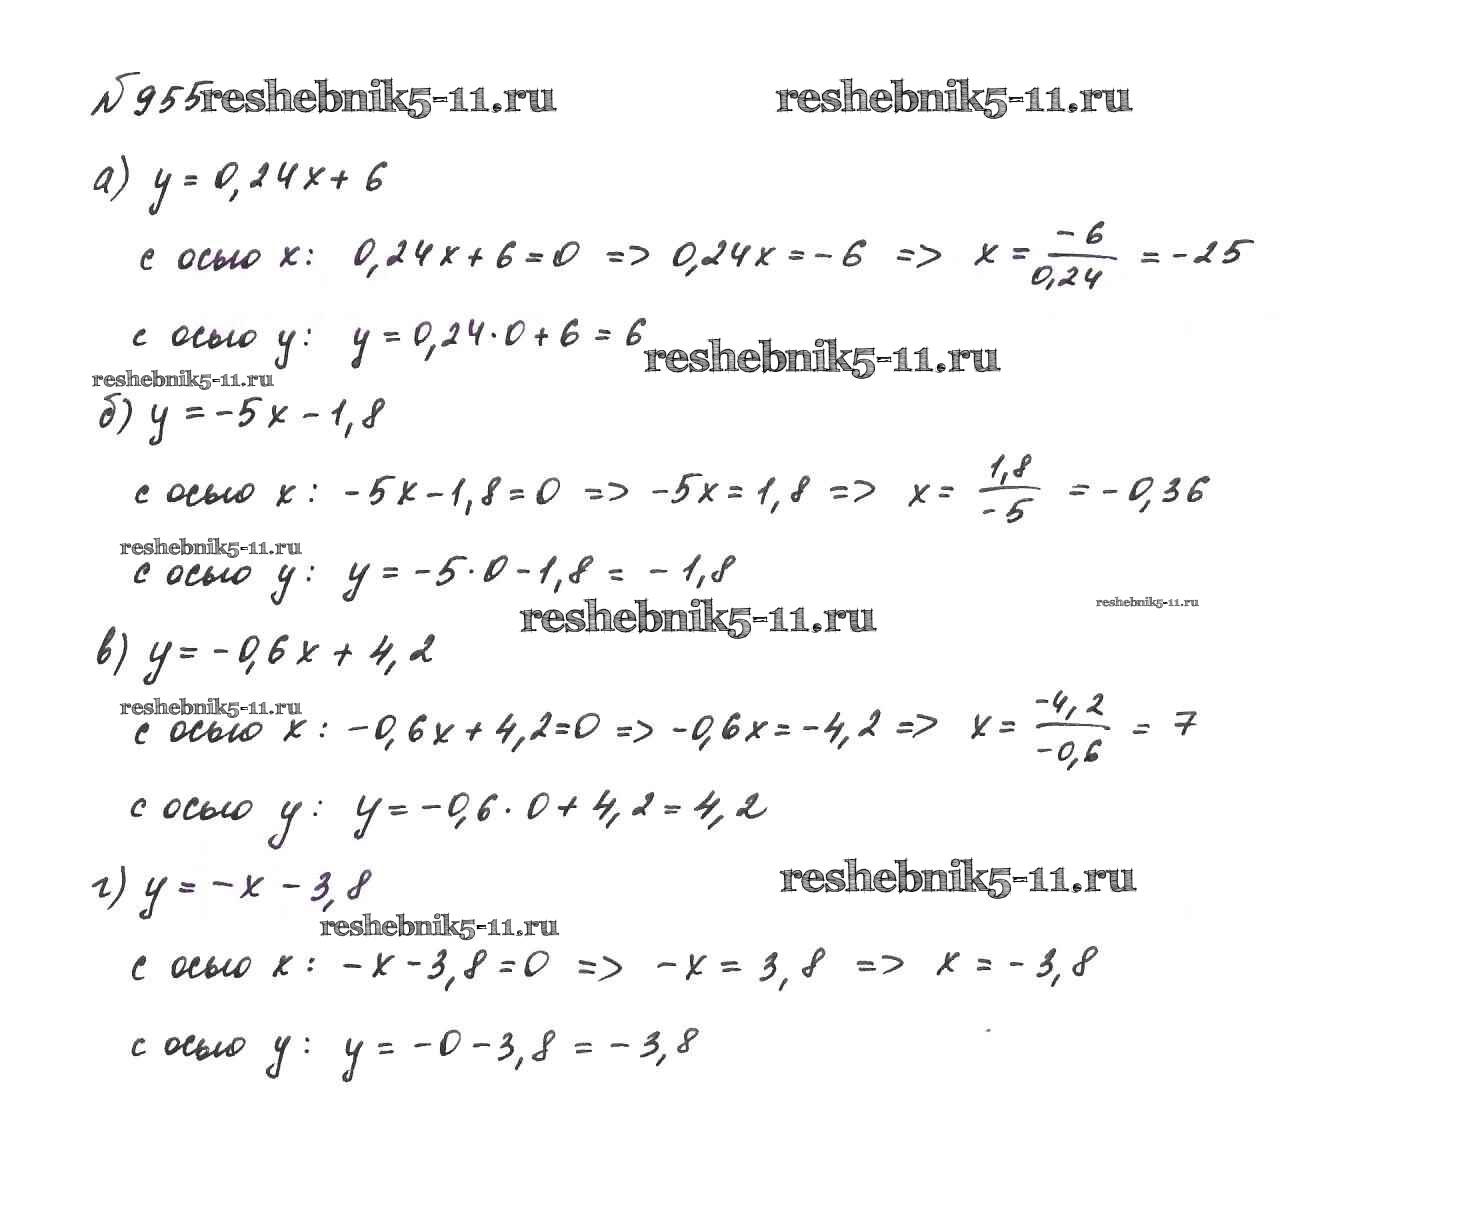 №955 reshebnik5-11.ru reshebnik5-11.ru
а) y = 0,24x + 6
с осью x: 0,24x + 6 = 0 => 0,24x = -6 => x = -6/0,24 = -25
с осью y: y = 0,24·0 + 6 = 6
reshebnik5-11.ru
reshebnik5-11.ru
б) y = -5x - 1,8
с осью x: -5x - 1,8 = 0 => -5x = 1,8 => x = 1,8/-5 = -0,36
reshebnik5-11.ru
с осью y: y = -5·0 - 1,8 = -1,8
reshebnik5-11.ru
reshebnik5-11.ru
в) y = -0,6x + 4,2
reshebnik5-11.ru
с осью x: -0,6x + 4,2 = 0 => -0,6x = -4,2 => x = -4,2/-0,6 = 7
с осью y: y = -0,6·0 + 4,2 = 4,2
г) y = -x - 3,8
reshebnik5-11.ru
reshebnik5-11.ru
с осью x: -x - 3,8 = 0 => -x = 3,8 => x = -3,8
с осью y: y = -0 - 3,8 = -3,8